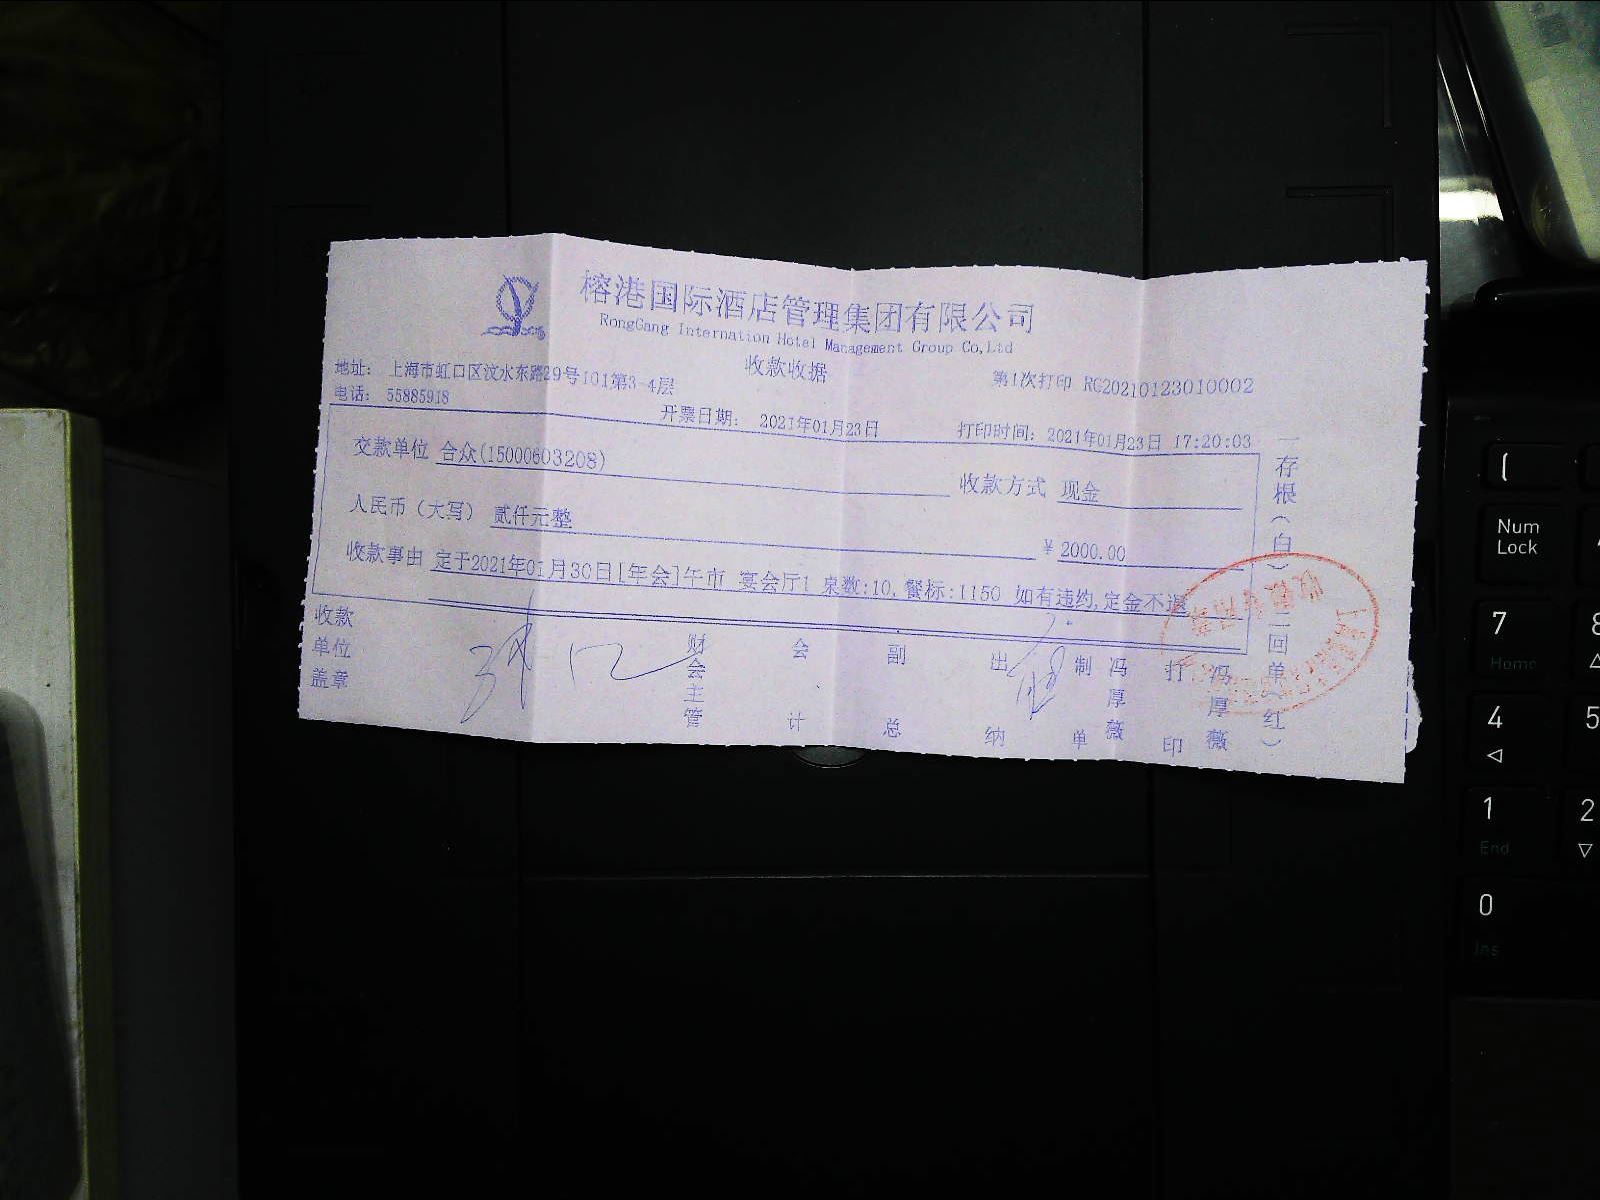 榕港国际酒店管理集团有限公司
RongGang Internation Hotel Management Group Co,Ltd
收款收据
地址: 上海市虹口区汶水东路29号101第3-4层
第1次打印 RG20210123010002
电话: 55885918
开票日期: 2021年01月23日
打印时间: 2021年01月23日 17:20:03
交款单位 合众(15000603208)
收款方式 现金
人民币(大写) 贰仟元整
¥ 2000.00
收款事由 定于2021年01月30日[年会]午市 宴会厅1 桌数:10,餐标:1150 如有违约,定金不退
收款单位盖章
财会主管
会计
副总
出纳
制单
冯厚薇
打印
冯厚薇
一存根(白)二回单(红)
Num
Lock
(
7
Home
8
4
5
1
End
2
0
Ins